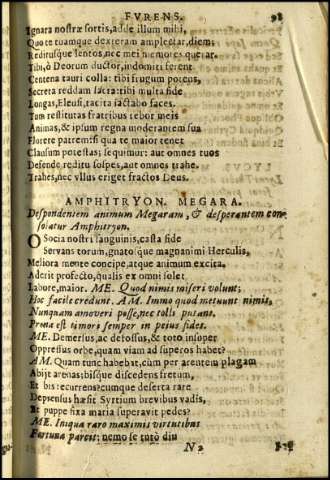 FVRENS. 98
Ignara nostræ sortis, adde illum mihi,
Quo te tuamque dexteram amplectar, diem:
Redirusque lentos, nec mei memores querar.
Tibi, ô Deorum ductor, indomiti ferent
Centena tauri colla: tibi frugum potens,
Secreta reddam sacra: tibi multa fide
Longas, Eleusi, tacita iactabo faces.
Tum restitutas fratribus rebor meis
Animas, & ipsum regna moderantem sua
Florere patrem: si qua te maior tenet
Clausum potestas; sequimur: aut omnes tuos
Defende reditu sospes, aut omnes trahe.
Trahes, nec vllus eriget fractos Deus.
AMPHITRYON. MEGARA.
Despondentem animum Megaram, & desperantem con
solatur Amphitryon.
O Socia nostri sanguinis, casta fide
Servans torum, gnatosque magnanimi Herculis,
Meliora mente concipe, atque animum excita.
Aderit profecto, qualis ex omni solet
Labore, maior. ME. Quod nimis miseri volunt;
Hoc facile credunt. AM. Immo quod metuunt nimis,
Nunquam amoveri posse, nec tolli putant.
Prona est timori semper in peius fides.
ME. Demersus, ac defossus, & toto insuper
Oppressus orbe, quam viam ad superos habet?
AM. Quam tunc habebat, cùm per arentem plagam
Abijt arenas bis que discedens fretum,
Et bis recurrens: cumque deserta rate
Depensus hæsit Syrtium brevibus vadis,
Et puppe fixa maria superavit pedes?
ME. Iniqua raro maximis virtutibus
Fortuna parcit: nemo se tutò diu
N 2